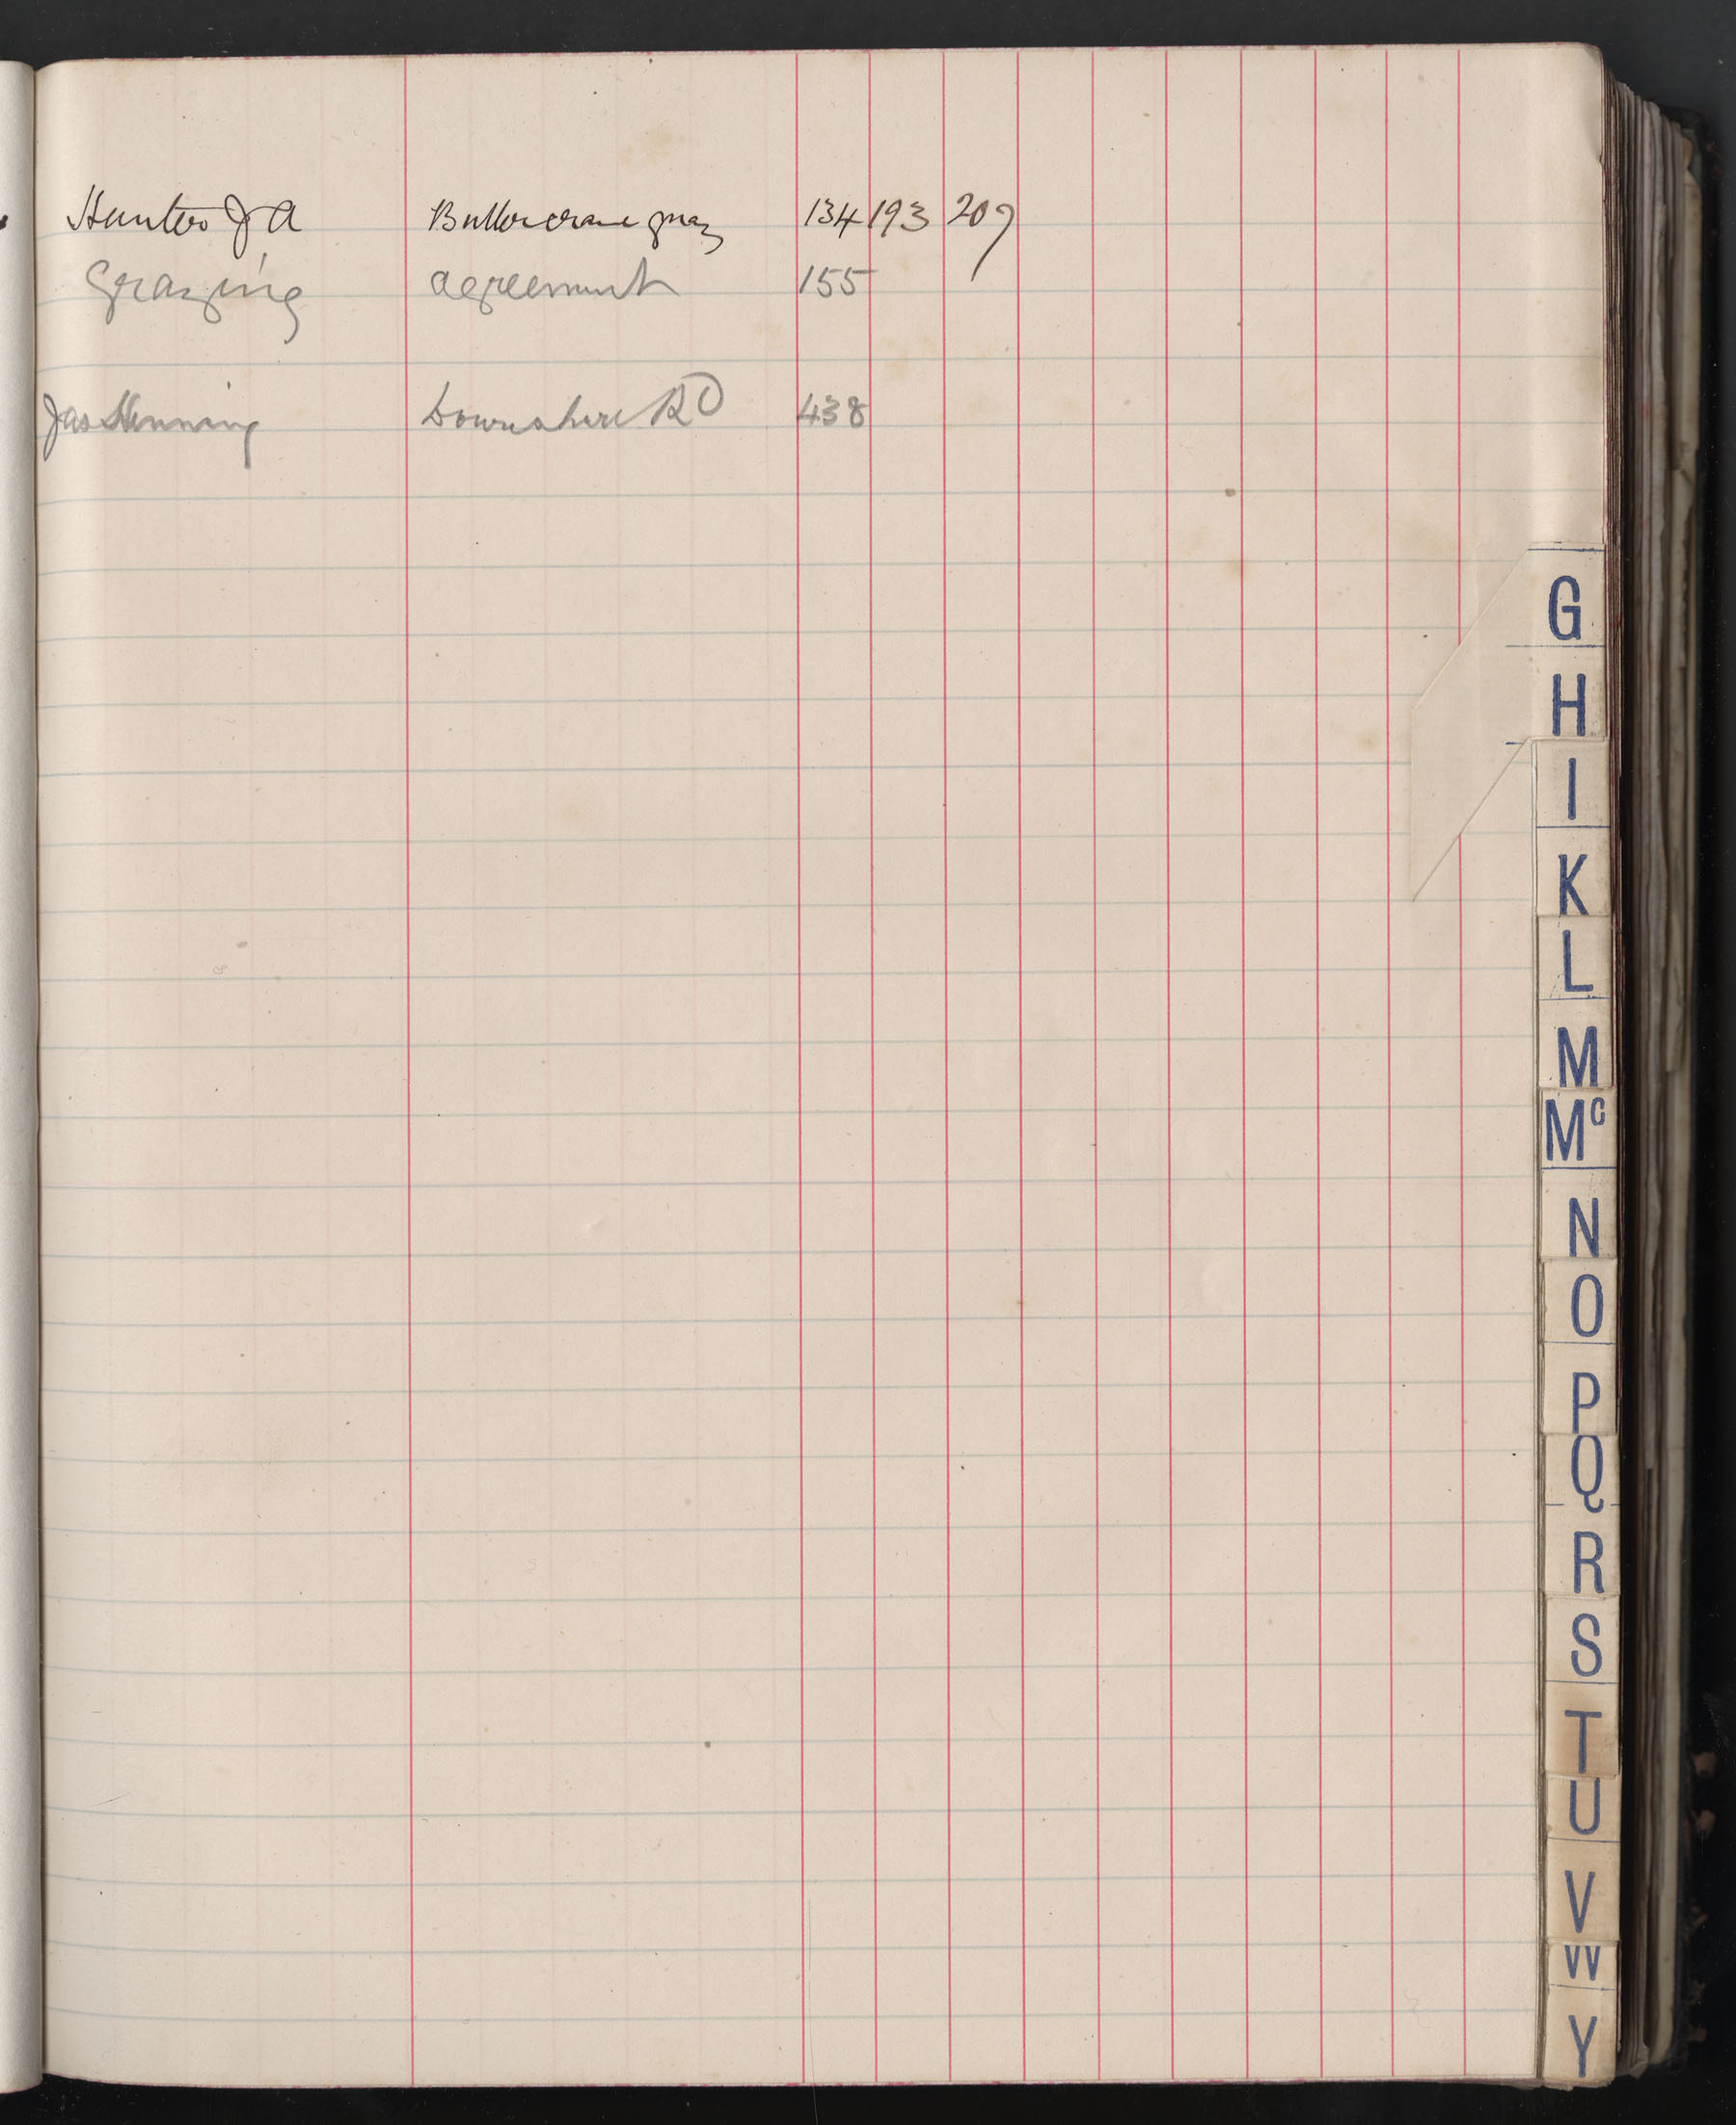 Hunter J A 134 193 209
Grazing agreement 155
Jas Henning Downshire RD 438
G
H
I
K
L
M
Mc
N
O
P
Q
R
S
T
U
V
W
Y